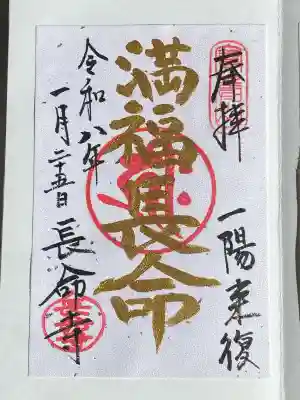 奉拝
一陽来復
満福長命
令和八年
一月二十五日 長命寺